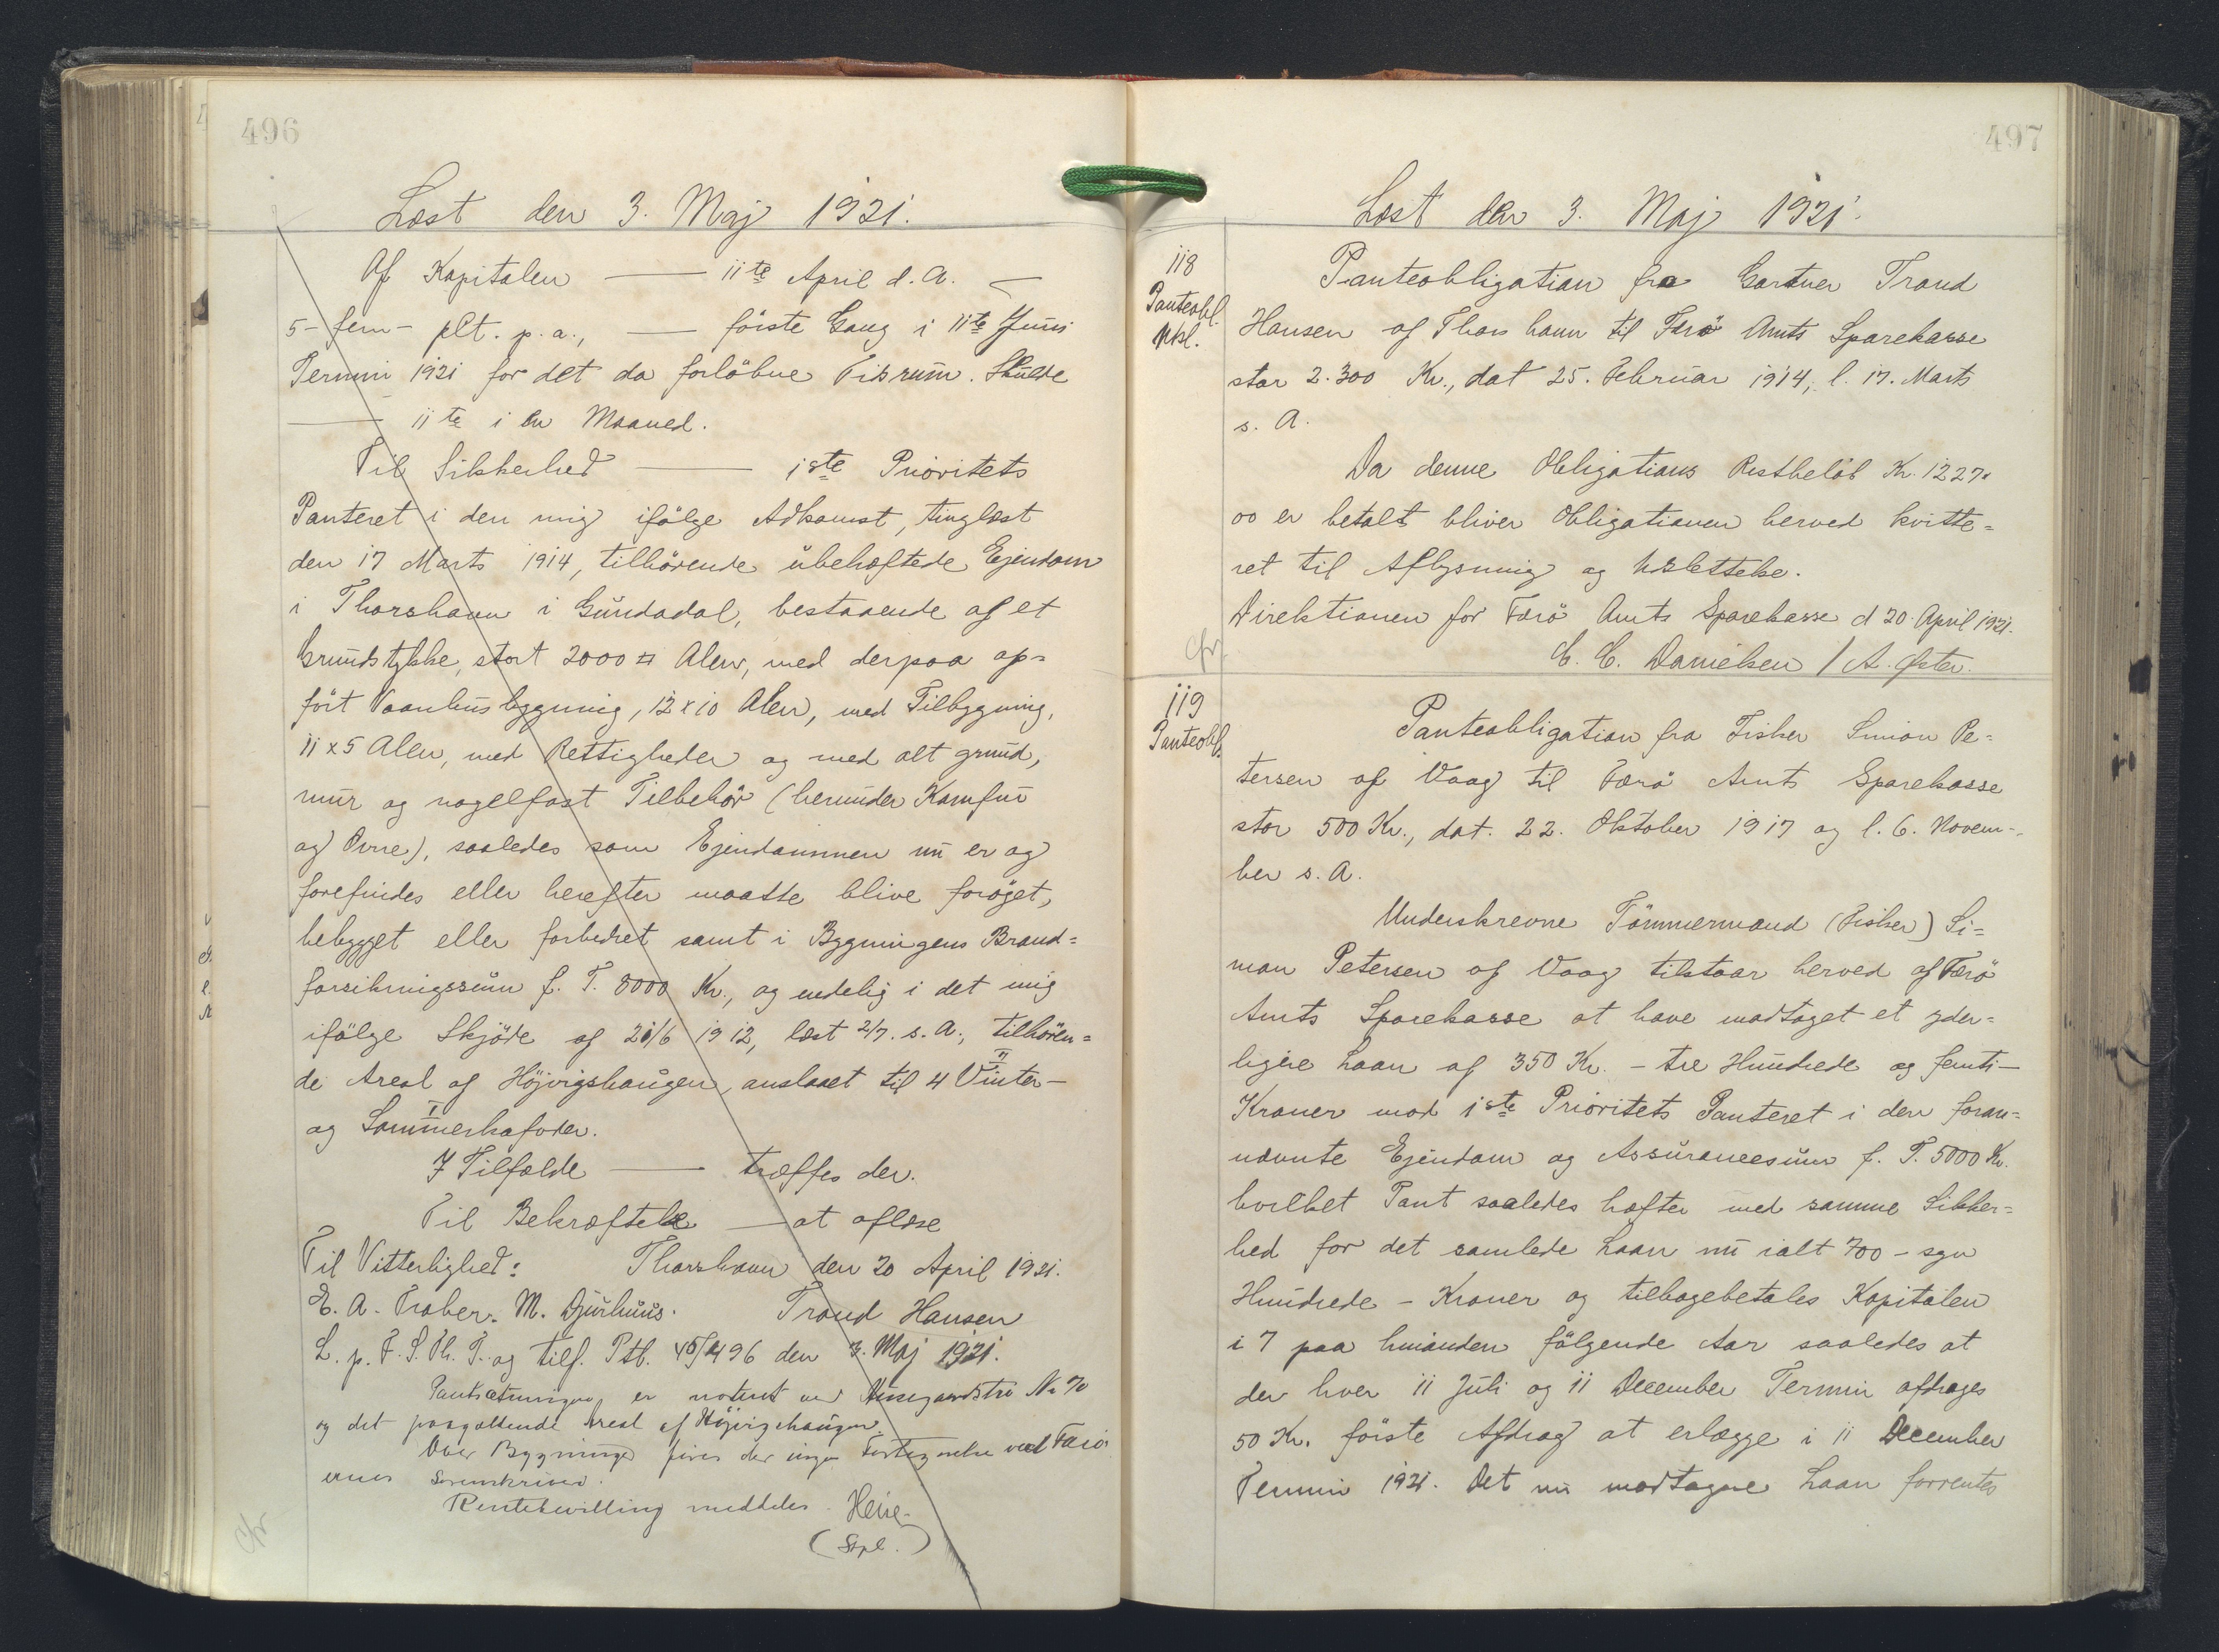 496
Læst den 3. Maj 1921.
Af Kapitalen — 11te April d. A. —
5 - fem - pCt. p. a., — förste Gang i 11te Juni
Termin 1921 for det da forlöbne Tidsrum. Skulde
— 11te i en Maaned.
Til Sikkerhed — 1ste Prioritets
Panteret i den mig ifölge Adkomst, tinglæst
den 17 Marts 1914, tilhörende ubehæftede Ejendom
i Thorshavn i Gundadal, bestaaende af et
Grundstykke, stort 2000 □ Alen, med derpaa op=
fört Vaanhusbygning, 12 x 10 Alen, med Tilbygning,
11 x 5 Alen, med Rettigheder og med alt grund,
mur og nagelfast Tilbehör (herunder Komfur
og Ovne), saaledes som Ejendommen nu er og
forefindes eller herefter maatte blive foröget,
bebygget eller forbedret samt i Bygningens Brand=
forsikringssum f. T. 8000 Kr., og endelig i det mig
ifölge Skjöde af 21/6 1912, læst 2/7. s. A., tilhören=
de Areal af Höjvigshaugen, anslaaet til 4 Vinter- II
og I Sommerkofoder.
I Tilfælde — træffes der.
Til Bekræftelse — at aflæse
Til Vitterlighed: Thorshavn den 20 April 1921.
E. A. Traber. M. Djurhuus. Trond Hansen
L. p. F. S. Th. T. og tilf. Ptb. 496 den 3. Maj 1921.
Pantsætningen er noteret ved No 70
og det paagældende Areal af Höjvigshaugen.
Over Bygninger föres der ingen Fortegnelse ved Færö
ernes Sorenskriveri.
Rentebevilling meddeles. Heise
(Stpl.)
cfr
497
Læst den 3. Maj 1921.
118
Panteobl.
Udsl.
Panteobligation fra Gartner Trond
Hansen af Thorshavn til Færö Amts Sparekasse
stor 2.300 Kr., dat 25. Februar 1914, l. 17. Marts
s. A.
Da denne Obligations Restbelöb Kr. 1227.
00 er betalt bliver Obligationen herved kvitte=
ret til Aflysning og Udslettelse.
Direktionen for Færö Amts Sparekasse d 20. April 1921.
C. C. Danielsen / A. Öster.
cfr.
119
Panteobl.
Panteobligation fra Fisker Simon Pe=
tersen af Vaag til Færö Amts Sparekasse
stor 500 Kr., dat. 22. Oktober 1917 og l. 6. Novem-
ber s. A.
Underskrevne Tömmermand (Fisker) Si=
mon Petersen af Vaag tilstaar herved af Færö
Amts Sparekasse at have modtaget et yder=
ligere Laan af 350 Kr. - tre Hundrede og femti-
Kroner mod 1ste Prioritets Panteret i den foran=
nævnte Ejendom og Assurancesum f. T. 5000 Kr.
hvilket Pant saaledes hæfter med samme Sikker=
hed for det samlede Laan nu ialt 700 - syv
Hundrede - Kroner og tilbagebetales Kapitalen
i 7 paa hinanden fölgende Aar saaledes at
der hver 11 Juli og 11 December Termin afdrages
50 Kr. förste Afdrag at erlægge i 11 December
Termin 1921. Det nu modtagne Laan forrentes